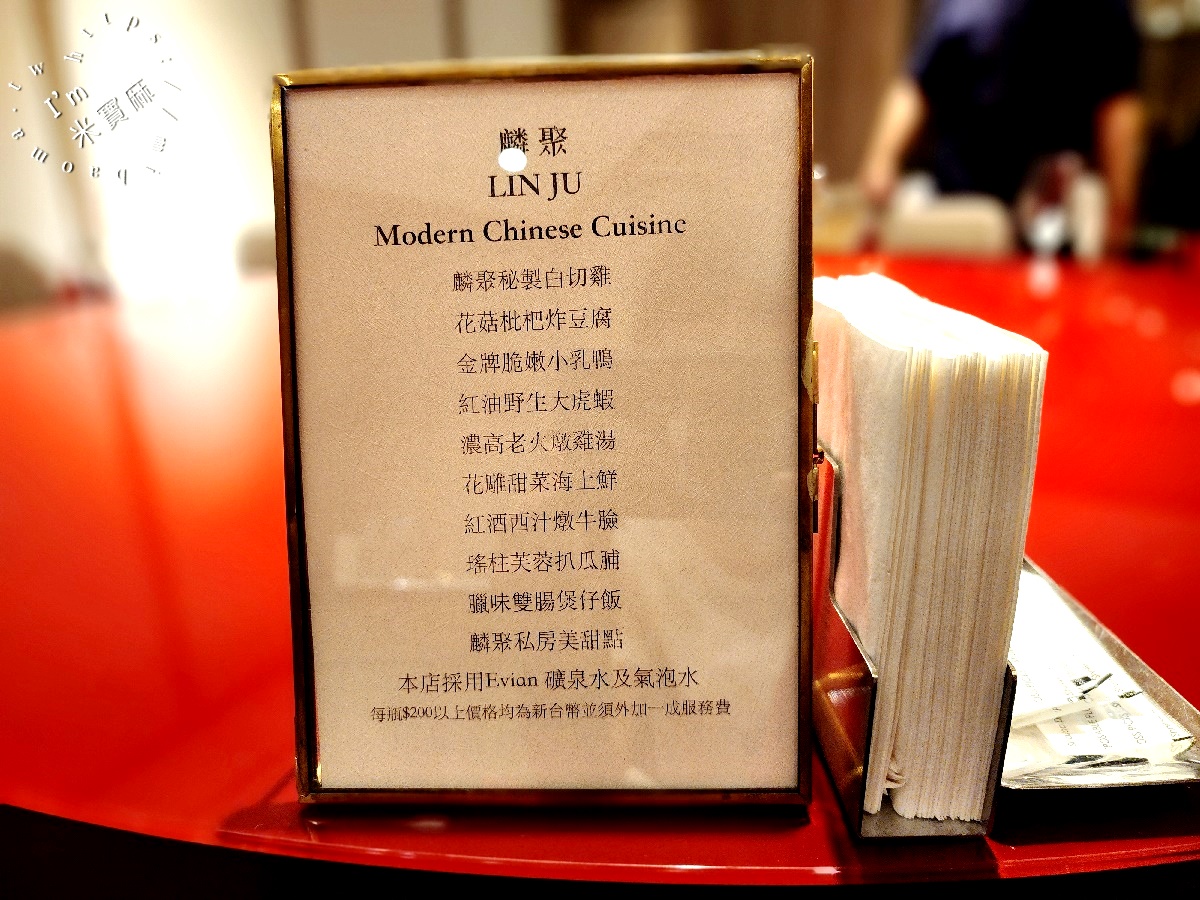 I'm
米寶麻
麟聚
LIN JU
Modern Chinese Cuisine
麟聚秘製白切雞
花菇枇杷炸豆腐
金牌脆嫩小乳鴨
紅油野生大虎蝦
濃高老火燉雞湯
花雕甜菜海上鮮
紅酒西汁燉牛臉
瑤柱芙蓉扒瓜脯
臘味雙腸煲仔飯
麟聚私房美甜點
本店採用Evian 礦泉水及氣泡水
每瓶$200以上價格均為新台幣並須外加一成服務費